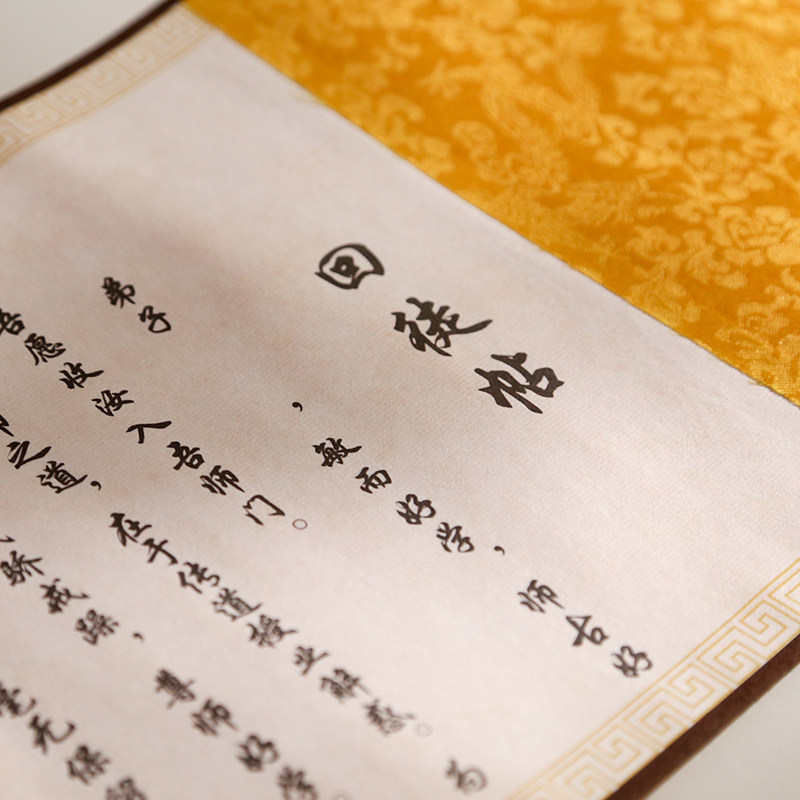 回徒帖
弟子，敏而好学，师古好
吾愿收汝入吾师门。
之道，在于传道授业解惑。为
骄戒躁，尊师好学。
毫无保留